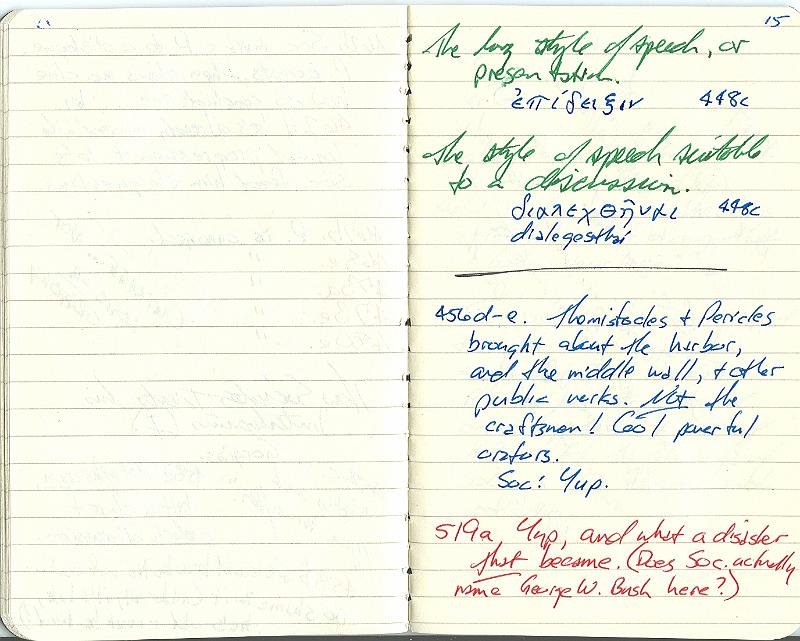 15
The long style of speech, or
presentation.
ἐπίδειξιν 448c
The style of speech suitable
to a discussion.
διαλεχθῆναι 448c
dialegesthai
456d-e. Themistocles & Pericles
brought about the harbor,
and the middle wall, & other
public works. Not the
craftsmen! Go powerful
orators.
Soc: Yup.
519a Yup, and what a disaster
that became. (Does Soc. actually
name George W. Bush here?)